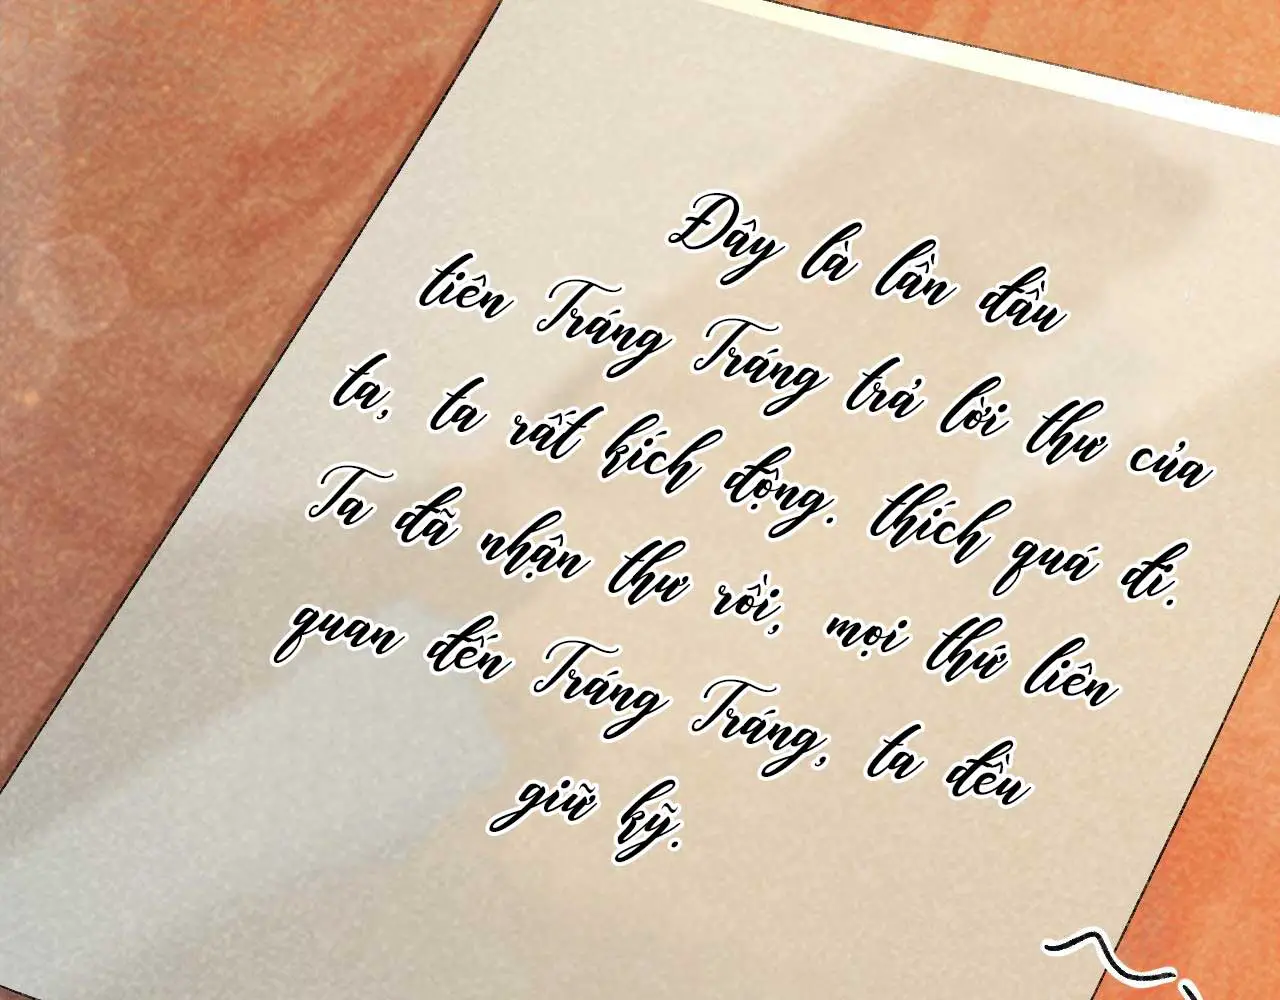 Đây là lần đầu
tiên Tráng Tráng trả lời thư của
ta, ta rất kích động. thích quá đi.
Ta đã nhận thư rồi, mọi thứ liên
quan đến Tráng Tráng, ta đều
giữ kỹ.